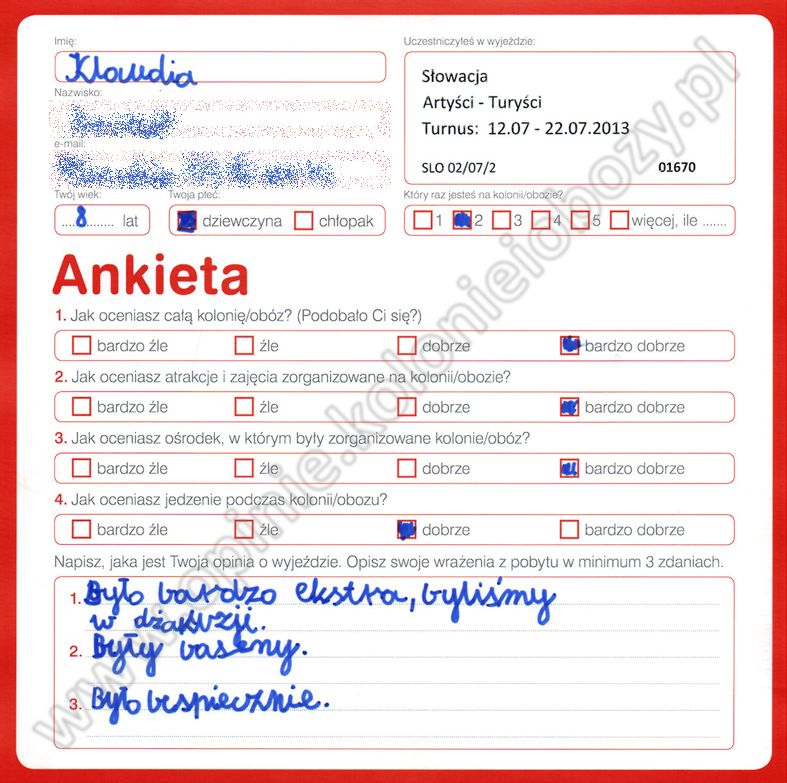 Imię:
Klaudia
Uczestniczyłeś w wyjeździe:
Słowacja
Artyści - Turyści
Turnus: 12.07 - 22.07.2013
SLO 02/07/2 01670
Nazwisko:
e-mail:
Twój wiek:
....8........ lat
Twoja płeć:
dziewczyna chłopak
Który raz jesteś na kolonii/obozie?
1 2 3 4 5 więcej, ile .......
Ankieta
1. Jak oceniasz całą kolonię/obóz? (Podobało Ci się?)
bardzo źle źle dobrze bardzo dobrze
2. Jak oceniasz atrakcje i zajęcia zorganizowane na kolonii/obozie?
bardzo źle źle dobrze bardzo dobrze
3. Jak oceniasz ośrodek, w którym były zorganizowane kolonie/obóz?
bardzo źle źle dobrze bardzo dobrze
4. Jak oceniasz jedzenie podczas kolonii/obozu?
bardzo źle źle dobrze bardzo dobrze
Napisz, jaka jest Twoja opinia o wyjeździe. Opisz swoje wrażenia z pobytu w minimum 3 zdaniach.
1. Było bardzo ekstra, byliśmy
w dżakuzji.
2. Były baseny.
3. Było bespiecznie.
www.opinie.kolonieiobozy.pl